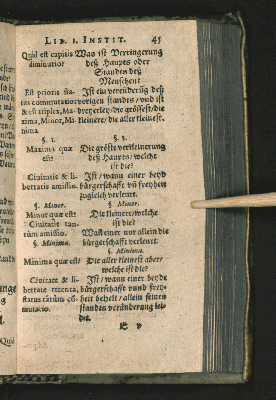 LIB. I. INSTIT. 45
Quid est capitis Was ist Verringerung
diminutio? deß Haupts oder
Standes deß
Menschen?
Est prioris sta- Ist ein verenderūg deß
tus commutatio vorigen standes / vnd ist
& est triplex, Ma- dreyerley / die gröste / die
xima, Minor, Mi- kleinere / die aller kleineste.
nima.
§. 1. §. 1.
Maxima quæ Die gröste verkleinerung
est? deß Haupts / welche
ist die?
Civitatis & li- Ist / wann einer beyd
bertatis amissio. bürgerschafft vñ freyheit
zugleich verleurt.
§. Minor. §. Minor.
Minor quæ est? Die kleinere / welche
Civitatis tan- ist die?
tùm amissio. Wañ einer nur allein die
§. Minima. bürgerschafft verleurt.
§. Minima.
Minima quæ est? Die aller kleinest aber /
welche ist die?
Civitate & li- Ist / wann einer beyde
bertate retenta, bürgerschafft vnnd frey-
status tātùm cō- heit behelt / allein seines
mutatio. standes veränderung lei-
det.